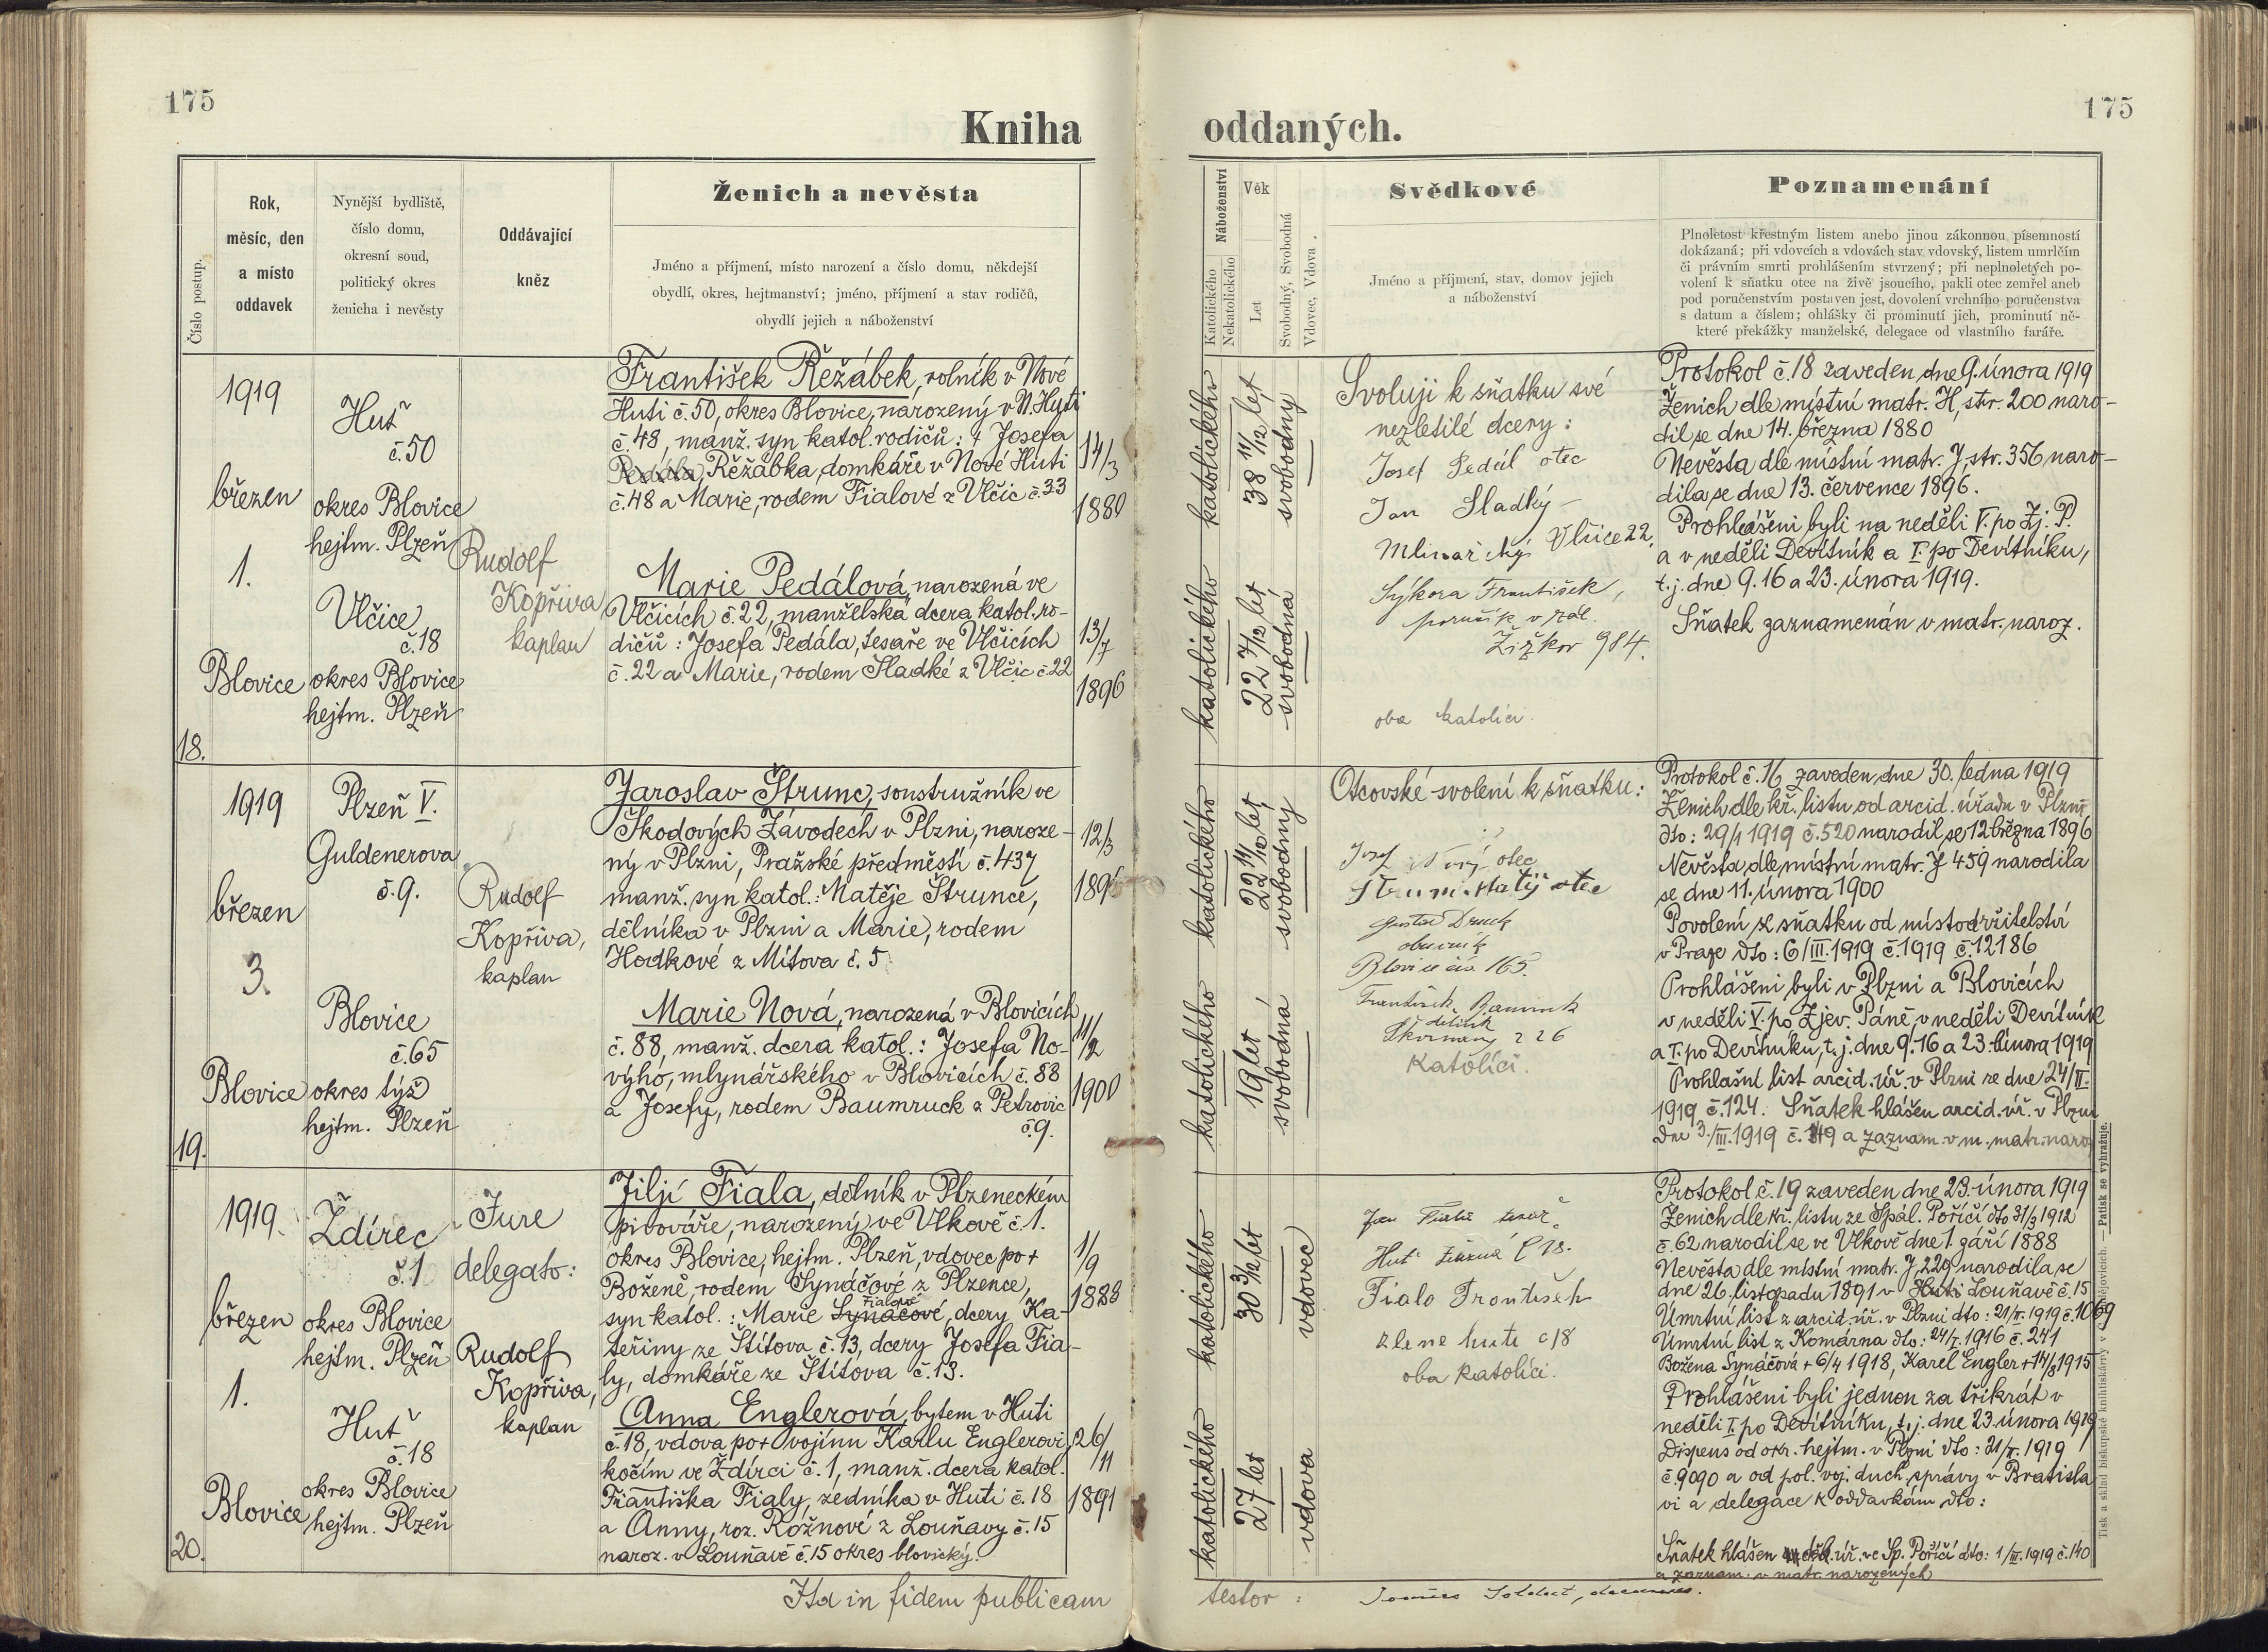 175
175
Kniha oddaných.
Číslo postup.
Rok,
měsíc, den
a místo
oddavek
Nynější bydliště,
číslo domu,
okresní soud,
politický okres
ženicha i nevěsty
Oddávající
kněz
Ženich a nevěsta
Jméno a příjmení, místo narození a číslo domu, někdejší
obydlí, okres, hejtmanství; jméno, příjmení a stav rodičů,
obydlí jejich a náboženství
Náboženství
Katolického
Nekatolického
Věk
Let
Svobodný, Svobodná
Vdovec, Vdova.
Svědkové
Jméno a příjmení, stav, domov jejich
a náboženství
Poznamenání
Plnoletost křestným listem anebo jinou zákonnou písemností
dokázaná; při vdovcích a vdovách stav vdovský, listem umrlčím
či právním smrti prohlášením stvrzený; při neplnoletých po-
volení k sňatku otce na živě jsoucího, pakli otec zemřel aneb
pod poručenstvím postaven jest, dovolení vrchního poručenstva
s datum a číslem; ohlášky či prominutí jich, prominutí ně-
které překážky manželské, delegace od vlastního faráře.
18.
1919
březen
1.
Blovice
Huť
č.50
okres Blovice
hejtm. Plzeň
Vlčice
č.18
okres Blovice
hejtm. Plzeň
Rudolf
Kopřiva
kaplan
František Řežábek, rolník v Nové
Huti č.50, okres Blovice, narozený v N. Huti
č.48, manž. syn katol. rodičů: † Josefa
Pedála Řežábka, domkáře v Nové Huti
č.48 a Marie, rodem Fialové z Vlčic č.33
14/3
1880
Marie Pedálová, narozená ve
Vlčicích č.22, manželská dcera katol. ro-
dičů: Josefa Pedála, tesaře ve Vlčicích
č.22 a Marie, rodem Sladké z Vlčic č.22
13/7
1896
katolického
38 11/12 let
svobodný
katolického
22 7/12 let
svobodná
Svoluji k sňatku své
nezletilé dcery:
Josef Pedál otec
Jan Sladký
Mlinařský Vlčice 22.
Sýkora František,
poručík v zál.
Žižkov 984.
oba katolíci.
Protokol č.18 zaveden dne 9. února 1919
Ženich dle místní matr. H, str. 200 naro-
dil se dne 14. března 1880
Nevěsta dle místní matr. J, str. 356 naro-
dila se dne 13. července 1896.
Prohlášeni byli na neděli V. po Zj. P.
a v neděli Devítník a I. po Devítníku,
t.j. dne 9. 16 a 23. února 1919.
Sňatek zaznamenán v matr. naroz.
19.
1919
březen
3.
Blovice
Plzeň V.
Guldenerova
č.9.
Blovice
č.65
okres týž
hejtm. Plzeň
Rudolf
Kopřiva,
kaplan
Jaroslav Štrunc, soustružník ve
Škodových Závodech v Plzni, naroze-
ný v Plzni, Pražské předměstí č.437
manž. syn katol.: Matěje Štrunce,
dělníka v Plzni a Marie, rodem
Hodkové z Mítova č.5
12/3
1896
Marie Nová, narozená v Blovicích
č.88, manž. dcera katol.: Josefa No-
výho, mlynářského v Blovicích č.88
a Josefy, rodem Baumruck z Petrovic
č.9.
11/2
1900
katolického
22 11/12 let
svobodný
katolického
19 let
svobodná
Otcovské svolení k sňatku:
Josef Nový otec
otec
obuvník
Blovice čís. 165.
František
dělník
Škvrňany 226
Katolíci.
Protokol č.16 zaveden dne 30. ledna 1919
Ženich dle kř. listu od arcid. úřadu v Plzni
dto: 29/1 1919 č.520 narodil se 12 března 1896
Nevěsta dle místní matr. J 459 narodila
se dne 11. února 1900
Povolení k sňatku od místodržitelství
v Praze dto: 6/III. 1919 č.1919 č.12186
Prohlášeni byli v Plzni a Blovicích
v neděli V. po Zjev. Páně, v neděli Devítník
a I. po Devítníku, t.j. dne 9. 16 a 23. února 1919
Prohlašní list arcid. úř. v Plzni ze dne 24/II.
1919 č.124. Sňatek hlášen arcid. úř. v Plzni
dne 3./III. 1919 č. 149 a zaznam. v m. matr. naroz
20.
1919
březen
1.
Blovice
Ždírec
č.1
okres Blovice
hejtm. Plzeň
Huť
č.18
okres Blovice
hejtm. Plzeň
Jure
delegato:
Rudolf
Kopřiva,
kaplan
Jiljí Fiala, dělník v Plzeneckém
pivováře, narozený ve Vlkově č.1.
okres Blovice, hejtm. Plzeň, vdovec po †
Boženě, rodem Synáčové z Plzence,
Fialové
syn katol.: Marie Synáčové, dcery Ka-
teřiny ze Štítova č.13, dcery Josefa Fia-
ly, domkáře ze Štítova č.13.
1/9
1888
Anna Englerová, bytem v Huti
č.18, vdova po † vojínu Karlu Englerovi,
kočím ve Ždírci č.1, manž. dcera katol.
Františka Fialy, zedníka v Huti č.18
a Anny, roz. Rožnové z Louňavy č.15
naroz. v Louňavě č.15 okres blovický.
26/11
1891
katolického
30 3/12 let
vdovec
katolického
27 let
vdova
Huť
Fiala František
hutě č18
oba katolíci.
Protokol č.19 zaveden dne 23. února 1919
Ženich dle kř. listu ze Spál. Poříčí dto 31/3 1912
č.62 narodil se ve Vlkově dne 1. září 1888
Nevěsta dle místní matr. J, 229 narodila se
dne 26. listopadu 1891 v Huti Louňavě č.15
Úmrtní list z arcid. úř. v Plzni dto: 21/II. 1919 č.1069
Úmrtní list z Komárna dto: 24/I. 1916 č.241
Božena Synáčová † 6/4 1918, Karel Engler † 14/8 1915
Prohlášeni byli jednou za třikrát v
neděli I. po Devítníku, t.j. dne 23. února 1919
Dispens od okr. hejtm. v Plzni dto: 21/II. 1919
č.9090 a od pol. voj. duch. správy v Bratisla
vi a delegace k oddavkám dto:
Sňatek hlášen úř. ve Sp. Poříčí dto: 1/III. 1919 č.140
a zaznam. v matr. narozených
Ita in fidem publicam
testor: